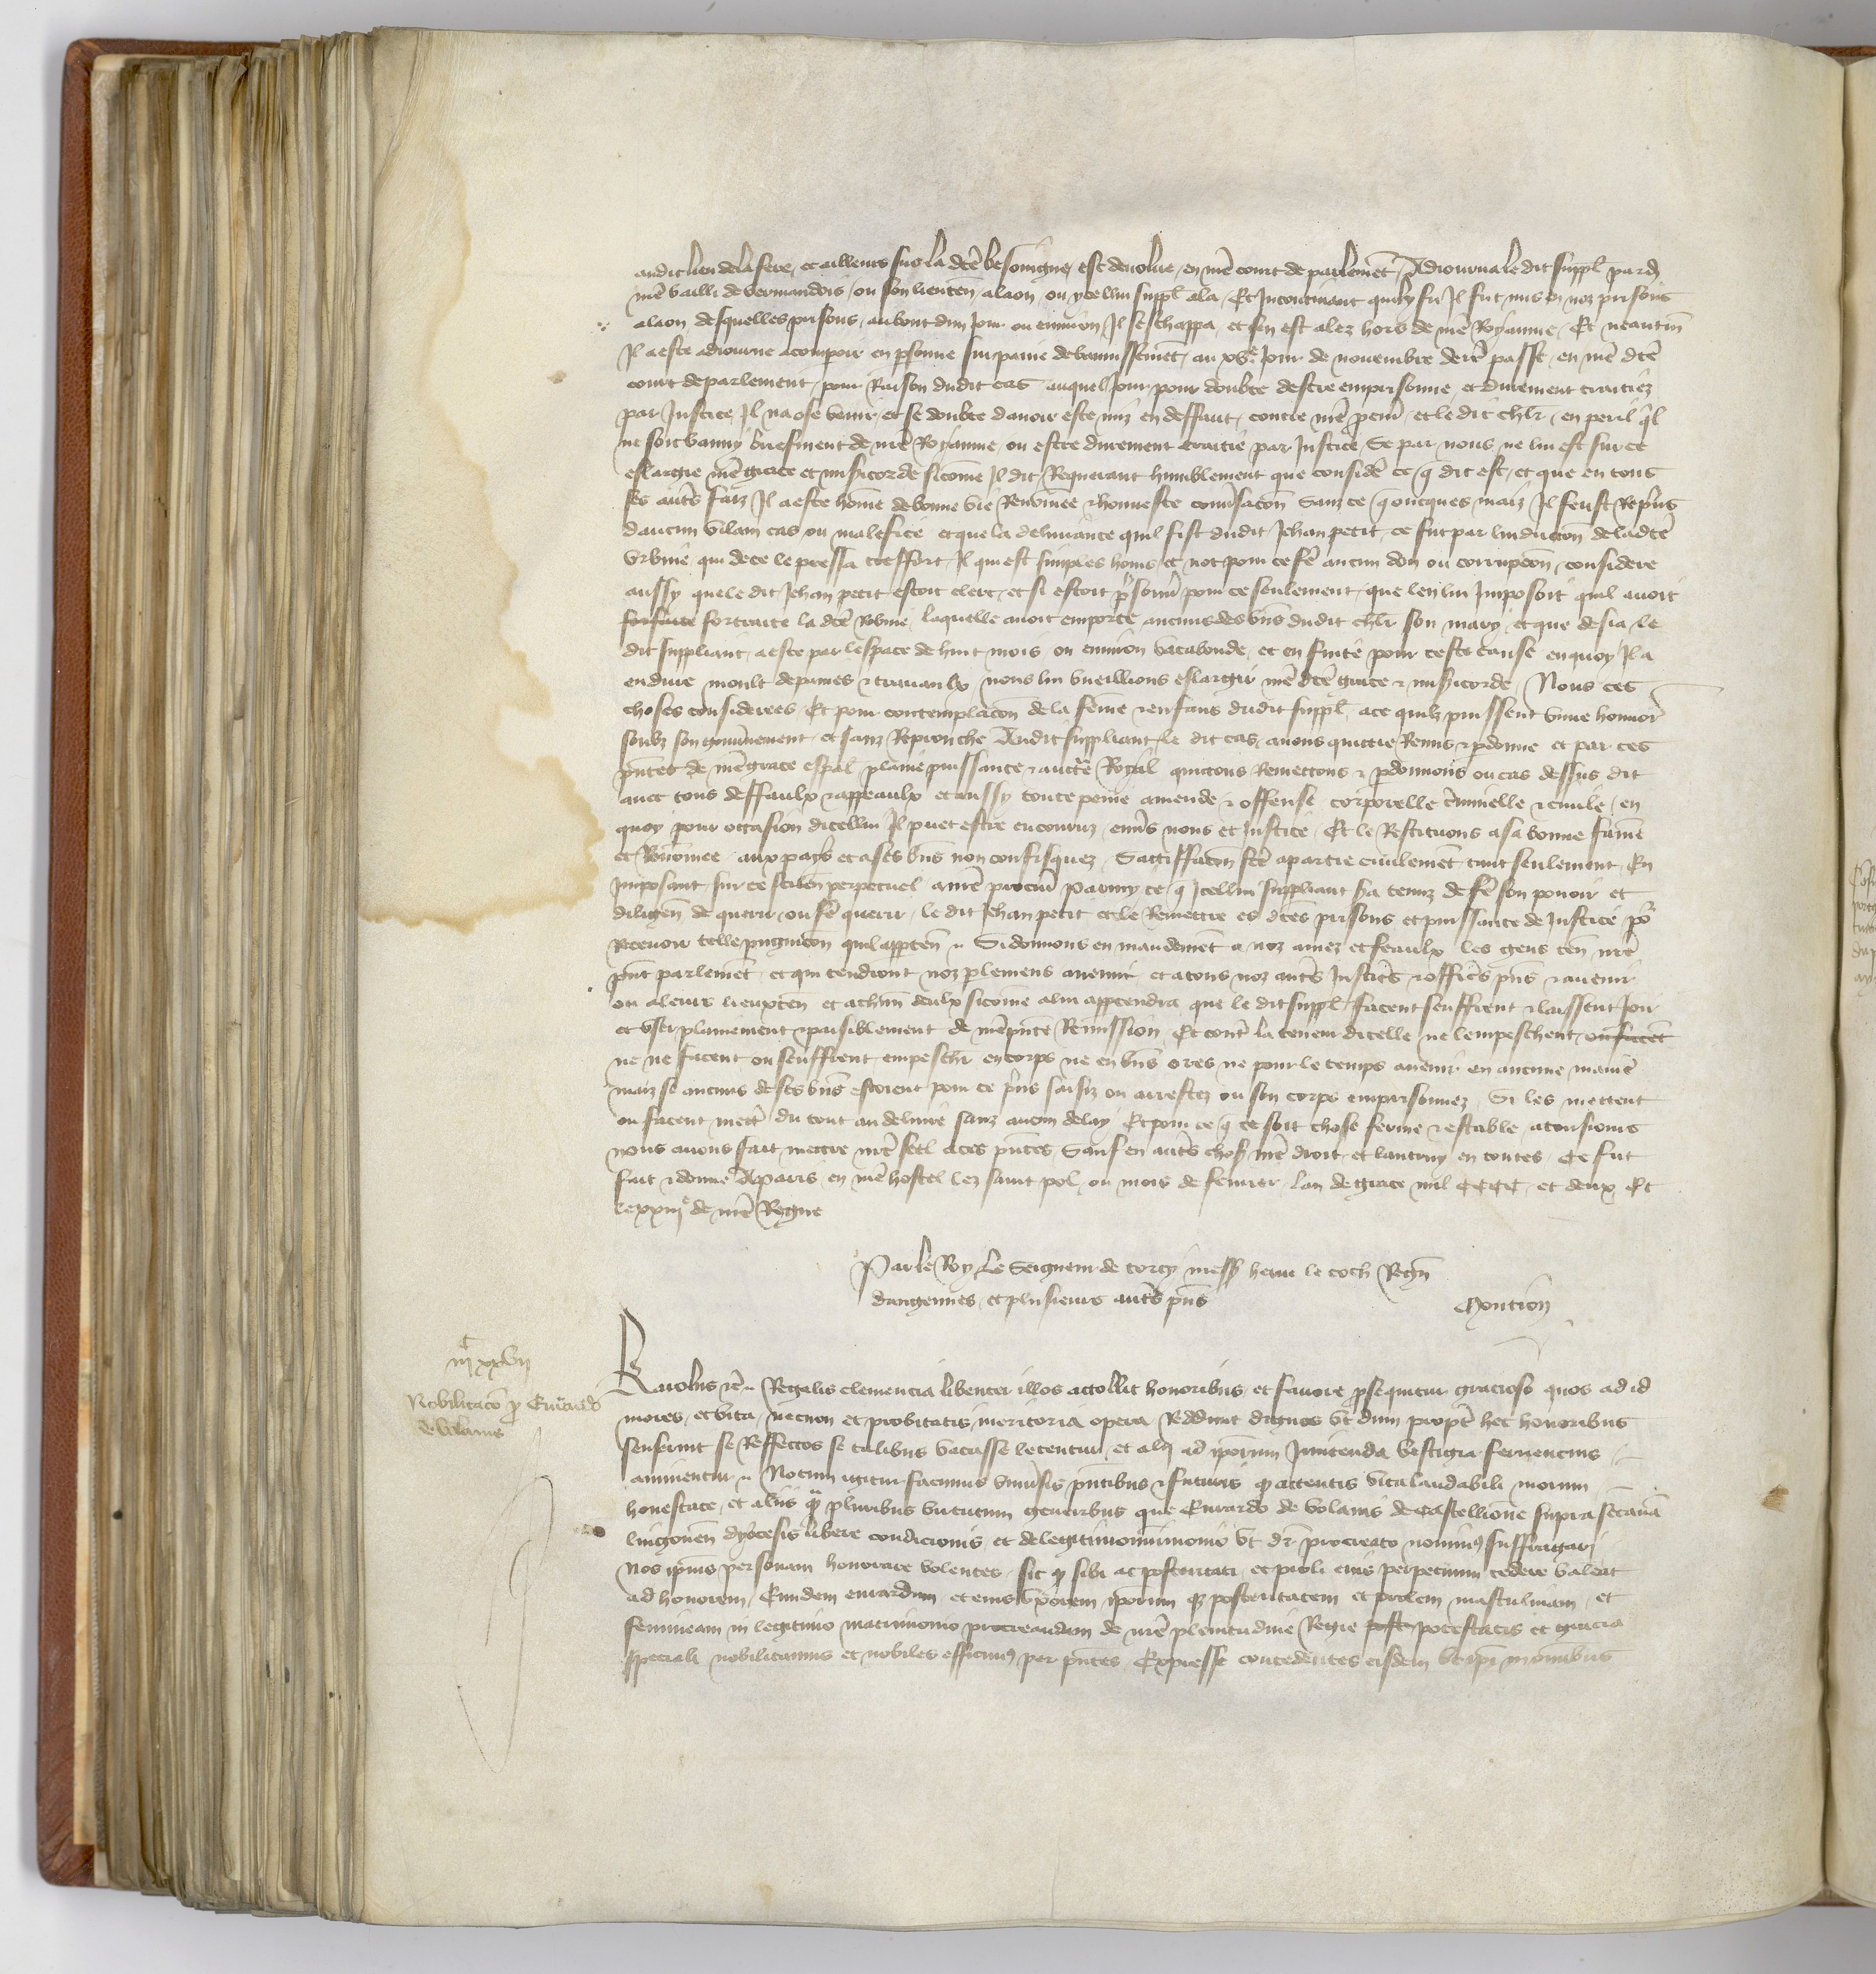 audit lieu de la fere, et ailleurs sur la dcē besoingne, est devolue, en nrē court de parlemēt, Adiourna ledit suppl par
nrē bailli de vermandois, ou son lieuten alaon, ou ycellui suppl ala, Et Incontinant quily fu Il fut mis en noz prisons
alaon, desquelles prisons, au bout dun Jour ou environ, Il seschappa, et sen est alez hors de nrē Royaume, Et neantm̄
Il a este adiourne a compoir en psonne sur paine de bannissemēt, au xve Jour de novembre derr̄ passe, en nrē dcē
court de parlement, pour Raison dudit cas auquel Jour, pour doubte destre emprisonne, et durement traictiez
par Justice, Il na ose venir, et se doubte davoir este mis en deffaut, contre nrē pcur̄, et le dit chlr̄, en peril ql̄
ne soit banny briefment de nrē Royaume, ou estre durement traictie par Justice, Se par nous, ne lui est sur ce
eslargie nrē grace et misericorde sicome Il dit, Requerant humblement que considē ce q̄ dit est, et que en tous
ses autrēs faiz Il a este home de bonne vie Renomee & honneste conūsacōn Sanz ce q̄ oncques maiz Il feust Repris
daucun vilain cas ou malefice et que la delivrance quil fist dudit Jehan petit, ce fut par linduction de ladcē
que de ce le pressa tresfort, Il qui est simples homs, et not pour ce fē aucun don ou corrupcōn, considere
aussy que le dit Jehan petit estoit clerc, et si estoit p̄sonn̄ pour ce seulement, que len lui Imposoit quil avoit
fortraite fortraite la dcē laquelle avoit emporte aucuns des bn̄s dudit chlr̄ son mary, et que desia le
dit suppliant, a este par lespace de huit mois, ou environ vacabonde, et en fuite pour ceste cause enquoy Il a
endure moult de paines & travaulx, nous lui vueillions eslargir nrē dcē grace & misericorde, Nous ces
choses considerees, Et pour contemplacōn de la feme & enfans dudit suppl, ace quilz puissent vivre honnor̄
soubz son gouv̄nement, et sanz Reprouche Audit suppliant, le dit cas, avons quictie Remis & pdonne et par ces
pn̄tes de nrē grace espāl plaine puissance & auctē Royal quictons Remettons & pdonnons ou cas dessus dit
avec tous deffaulx & appeaulx et aussy toute peine amende & offense corporelle cr̄iminelle & civile, en
quoy pour occasion dicellui Il puet estre encouruz, envs̄ nous et Justice, Et le Restituons a sa bonne fame
et Renōmee, aux pays et a ses bn̄s non confisquez, Satiffacōn fcē a partie civilemēt tant seulement, En
Imposant, sur ce scilen̄ perpetuel a nrē procur̄ parmy ce q̄ Icellui suppliant tenuz de fē son povoir et
diligen̄ de querir, ou fē querir, le dit Jehan petit et le Remettre es dcēs prisons et puissance de Justice, po͛
Recevoir telle pugnicōn quil apptēn, Si donnons en mandemēt a noz amez et feaulx les gens ten̄ nrē
pn̄t parlemēt, et qui tendront noz plemens avenir et a tous noz autrēs Justicēs & officiēs pn̄s & avenir
ou a leurs lieuxten̄ et achun̄ deulx sicome alui apptendra que le dit suppl, facent seuffrent & laissent Joir
et user plainement & paisiblement de nrē pn̄te Remission, Et contrē la teneur dicelle ne lempeschent, ou facēt
ne ne facent ou seuffrent empeschr̄ en corps ne en bn̄s ores ne pour le temps avenir en aucune manīē
maiz se aucuns de ses bn̄s estoient pour ce pris saisiz ou arrestez ou son corps emprisonnez, Si les mettent
ou facent mettrē du tout au delivre sanz aucun delay, Et pour ce q̄ ce soit chose ferme & estable, a tousiours
nous avons fait mettre nrē seel a ces pn̄tes, Sauf en autrēs chosēs nrē droit, et lautruy en toutes, Ce fut
fait & donne A Paris, en nrē hostel lez saint pol, ou mois de fevrier, lan de grace mil CCCC, et deux Et
le xxiije de nrē Regne
Par le Roy, Le Seigneur de torcy messē hervi le coch Regn̄
dangennes, et plusieurs autrēs pn̄s
Monteon
iijc xxvij
Nobilitacō p Evrardo
de Volanis
Karolus &c̄ Regalis clemencia libenter illos attollit honoribus, et favore psequitur gracioso quos ad id
mores, et vita, necnon et probitatis, meritoria opera Reddunt dignos ut dum proptē hec honoribus
senserint se Reffectos se talibus vacasse letentur, et alij ad ipōrum Imitenda vestigia fervencius
animentur, Notum igitur facimus univsis pn̄tibus & futuris q̄ attentis vita laudabili morum
honestate, et aliis q̄ pluribus virtutum generibus que Evrardo de Volanis de Castellione supra secanā
lingonen̄ dyocesis libere condicionis, et de legitimo mr̄imonio ut dr̄ procreato novimus suffragari
Nos ipīus personam honorare volentes, sic q̄ sibi ac posteritati, et proli eius perpetuum cedere valeat
ad honorem, Eundem evrardum, et eius uxorem, ipōrum q̄ posteritatem et prolem masculinam, et
femineam in legitimo matrimonio procreandam de nrē plenitudine Regie poste potestatis et gracia
speciali nobilitamus et nobiles efficimus per pn̄tes, Expresse concedentes eisdem ut ipī in omībus